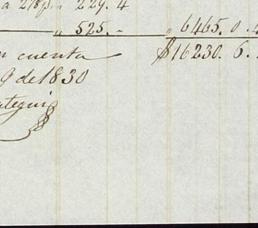 a 218 p. " 229. 4
" 525. - " 6465. 0.
n cuenta $16230. 6.
9 de 1830
ategui